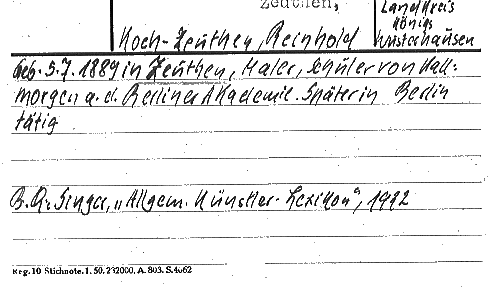 Landkreis
Königs
Wusterhausen
Koch-Zeuthen, Reinhold
Geb. 5.7.1889 in Zeuthen, Maler, Schüler von Kall-
morgen a. d. Berliner Akademie. Später in Berlin
tätig
B. Q: Singer, „Allgem. Künstler-Lexikon", 1922
Reg. 10 Stichnote. 1. 50. 232000. A. 803. S. 4062